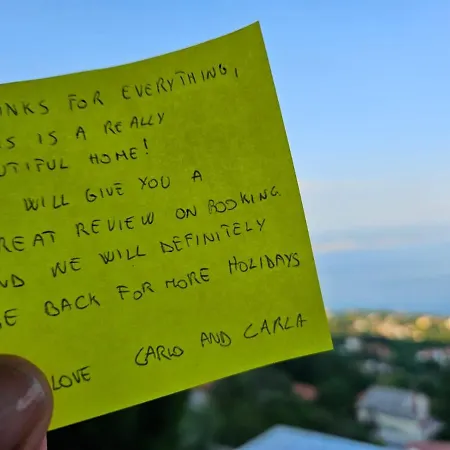 NKS FOR EVERYTHING,
S IS A REALLY
UTIFUL HOME!
WILL GIVE YOU A
REAT REVIEW ON BOOKING
ND WE WILL DEFINITELY
E BACK FOR MORE HOLIDAYS
LOVE CARLO AND CARLA